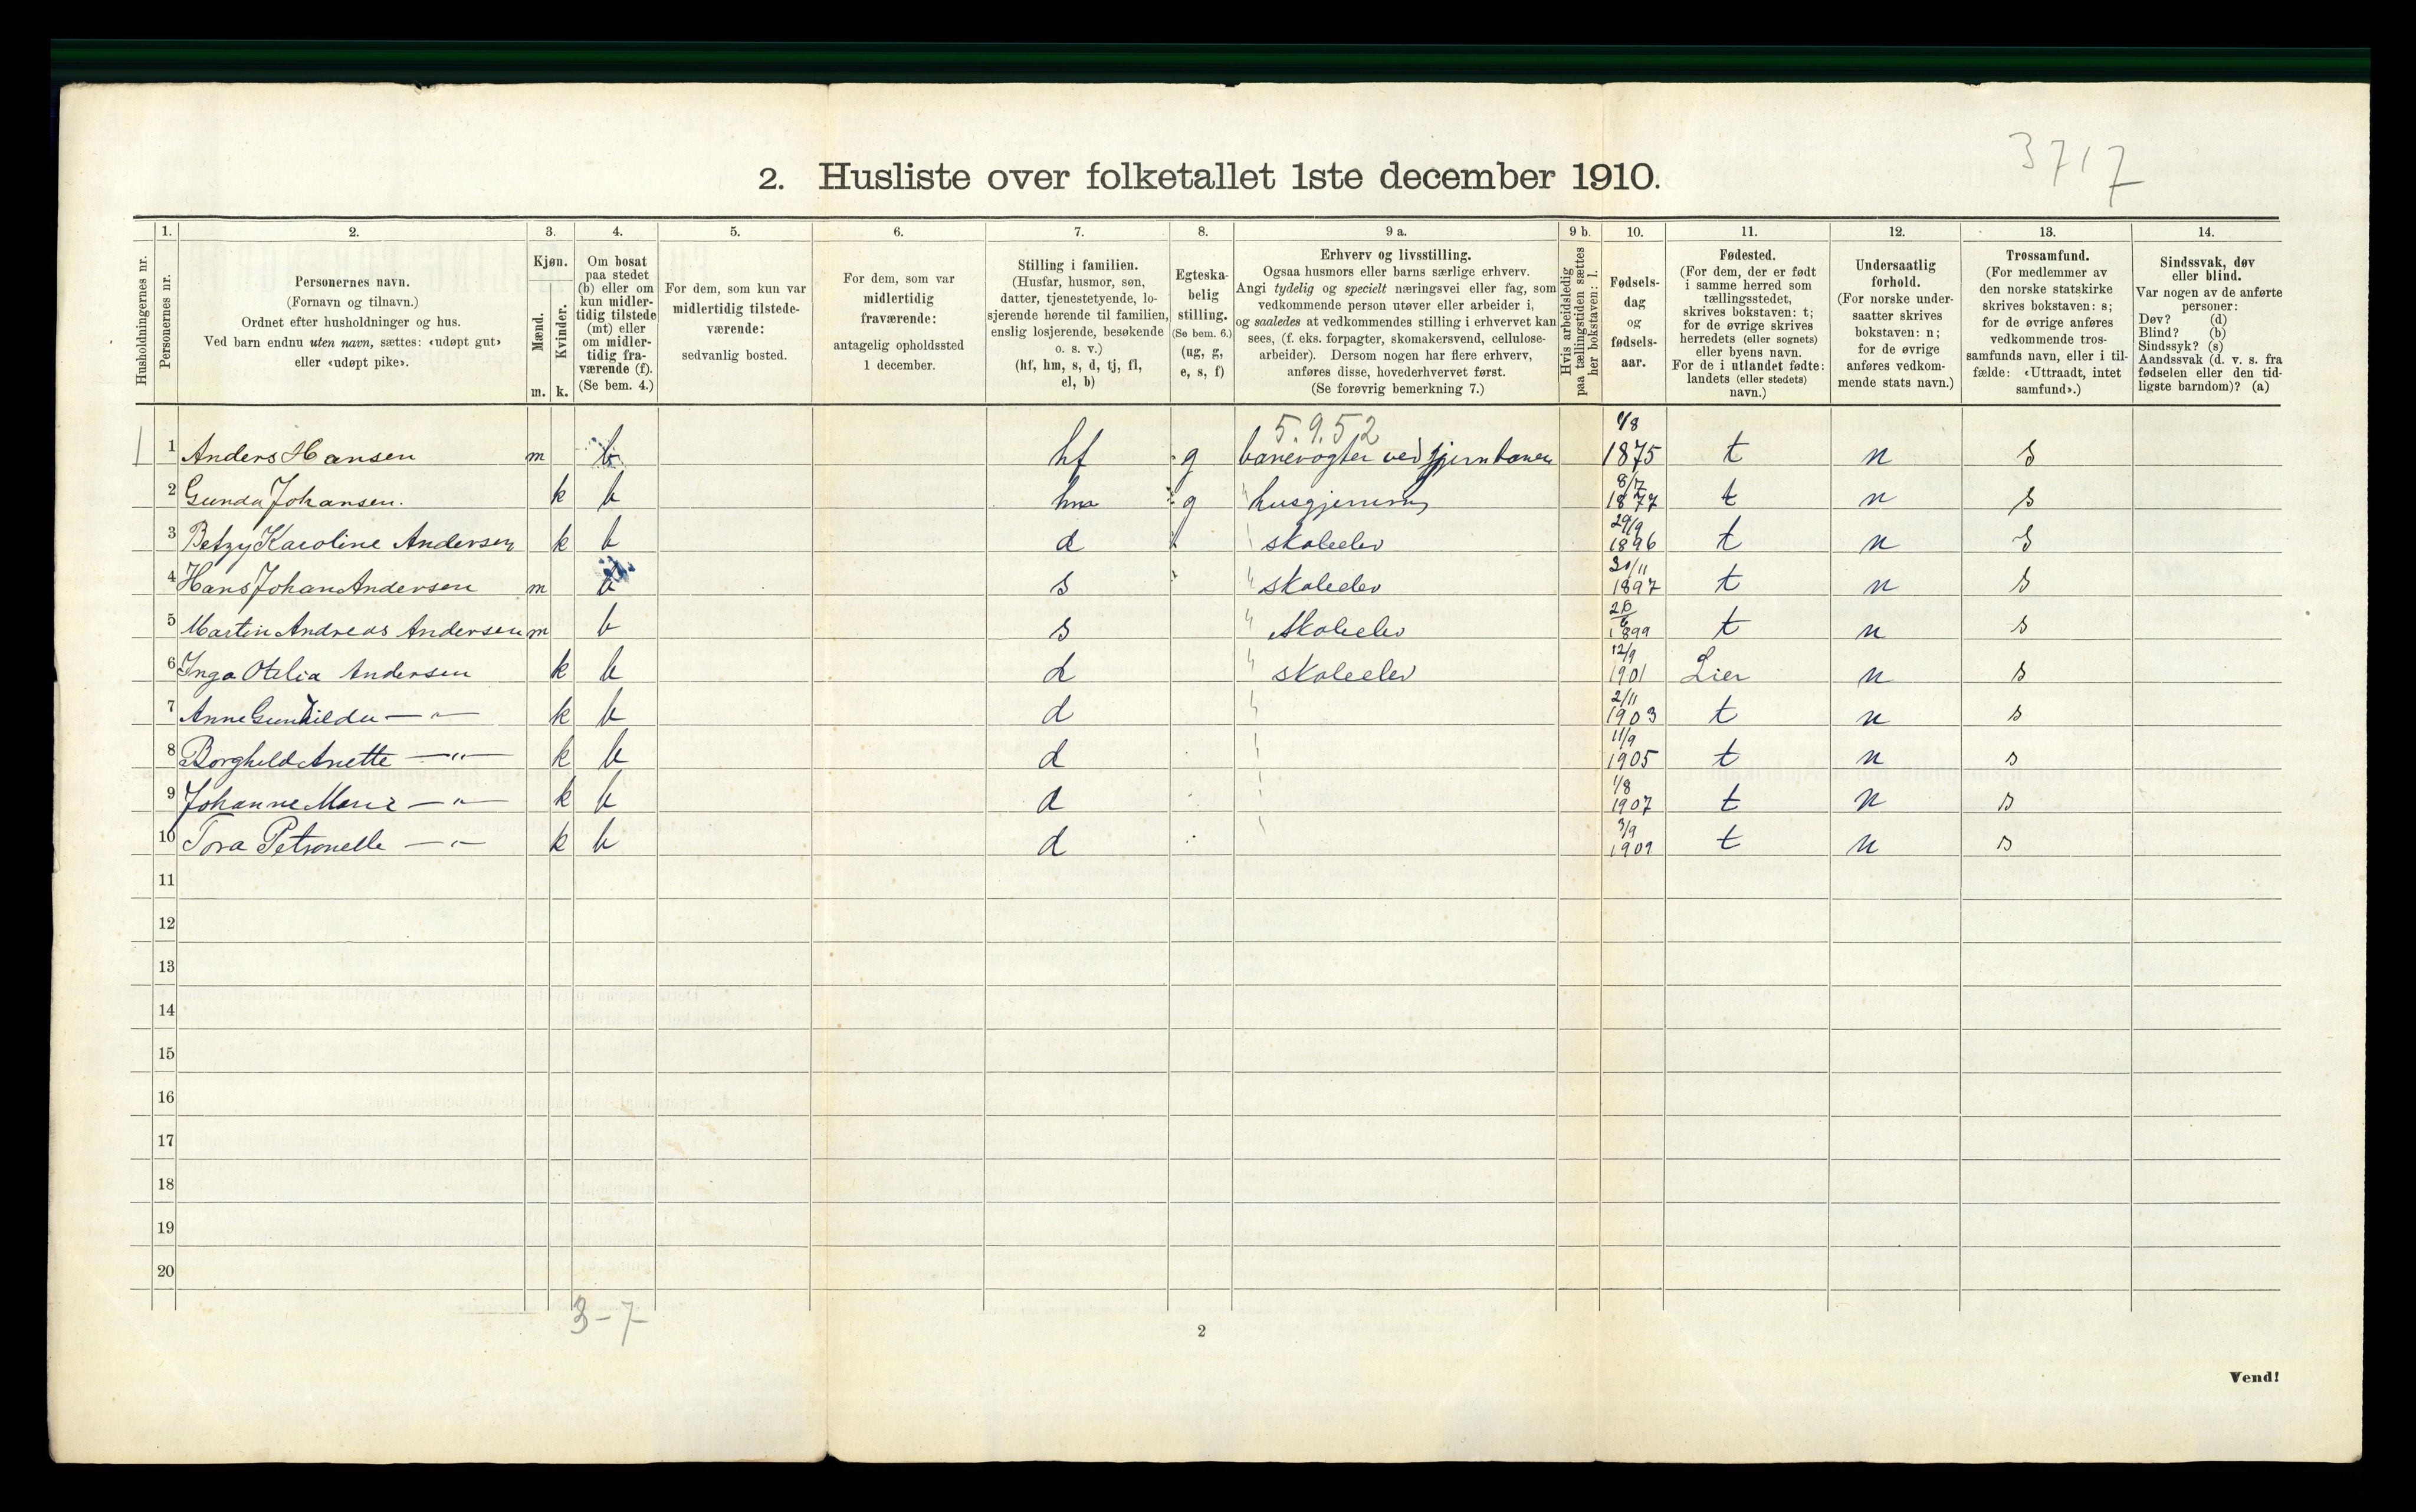 3717
2. Husliste over folketallet 1ste december 1910.
Husholdningernes nr.
1.
Personernes nr.
2.
Personernes navn.
(Fornavn og tilnavn.)
Ordnet efter husholdninger og hus.
Ved barn endnu uten navn, sættes: «udøpt gut»
eller «udøpt pike».
3.
Kjøn.
Mænd.
Kvinder.
m. k.
4.
Om bosat
paa stedet
(b) eller om
kun midler-
tidig tilstede
(mt) eller
om midler-
tidig fra-
værende (f).
(Se bem. 4.)
5.
For dem, som kun var
midlertidig tilstede-
værende:
sedvanlig bosted.
6.
For dem, som var
midlertidig
fraværende:
antagelig opholdssted
1 december.
7.
Stilling i familien.
(Husfar, husmor, søn,
datter, tjenestetyende, lo-
sjerende hørende til familien,
enslig losjerende, besøkende
o. s. v.)
(hf, hm, s, d, tj, fl,
el, b)
8.
Egteska-
belig
stilling.
(Se bem. 6.)
(ug, g,
e, s, f)
9 a.
Erhverv og livsstilling.
Ogsaa husmors eller barns særlige erhverv.
Angi tydelig og specielt næringsvei eller fag, som
vedkommende person utøver eller arbeider i,
og saaledes at vedkommendes stilling i erhvervet kan
sees, (f. eks. forpagter, skomakersvend, cellulose-
arbeider). Dersom nogen har flere erhverv,
anføres disse, hovederhvervet først.
(Se forøvrig bemerkning 7.)
9 b.
Hvis arbeidsledig
paa tællingstiden sættes
her bokstaven: l.
10.
Fødsels-
dag
og
fødsels-
aar.
11.
Fødested.
(For dem, der er født
i samme herred som
tællingsstedet,
skrives bokstaven: t;
for de øvrige skrives
herredets (eller sognets)
eller byens navn.
For de i utlandet fødte:
landets (eller stedets)
navn.)
12.
Undersaatlig
forhold.
(For norske under-
saatter skrives
bokstaven: n;
for de øvrige
anføres vedkom-
mende stats navn.)
13.
Trossamfund.
(For medlemmer av
den norske statskirke
skrives bokstaven: s;
for de øvrige anføres
vedkommende tros-
samfunds navn, eller i til-
fælde: «Uttraadt, intet
samfund».)
14.
Sindssvak, døv
eller blind.
Var nogen av de anførte
personer:
Døv? (d)
Blind? (b)
Sindssyk? (s)
Aandssvak (d. v. s. fra
fødselen eller den tid-
ligste barndom)? (a)
5.9.52
1 1 Anders Hansen m b hf g banevogter ved jernbanen 1875 t n s
2 Gunda Johansen. k b hm g husgjerning 8/7 1877 t n s
3 Betzy Karoline Andersen k b d skoleelev 29/9 1896 t n s
4 Hans Johan Andersen m b s skoleelev 30/11 1897 t n s
5 Martin Andreas Andersen m b s skoleelev 1899 t n s
6 Inga Otelia Andersen k b d skoleelev 12/9 1901 Lier n s
7 Anne Gunhilda —〃— k b d 2/11 1903 t n s
8 Borghild Anette —〃— k b d 11/9 1905 t n s
9 Johanne Marie —〃— k b d 1/8 1907 t n s
10 Tora Petronelle —〃— k b d 3/9 1909 t n s
11
12
13
14
15
16
17
18
19
20
3-7
2
Vend!